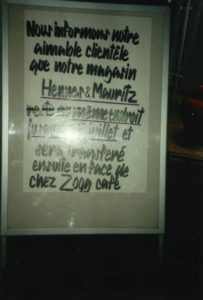 Nous informons notre
aimable clientèle
que notre magasin
Hennes & Mauritz
reste au même endroit
juillet et
sera transféré
ensuite en face de
chez Zogg café